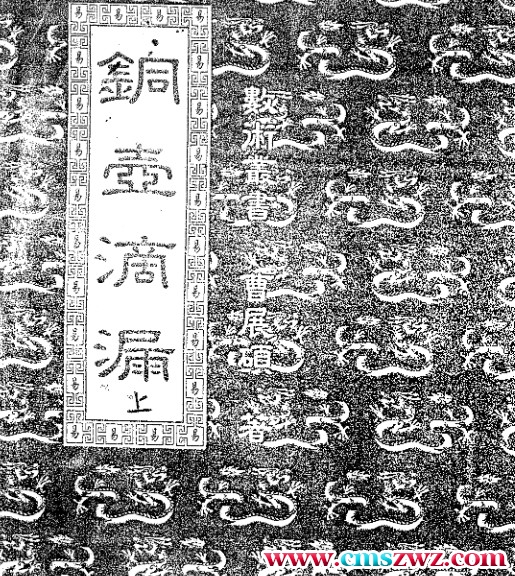 數術叢書 曹展碩 著
銅壺滴漏
上
www.cmszwz.com